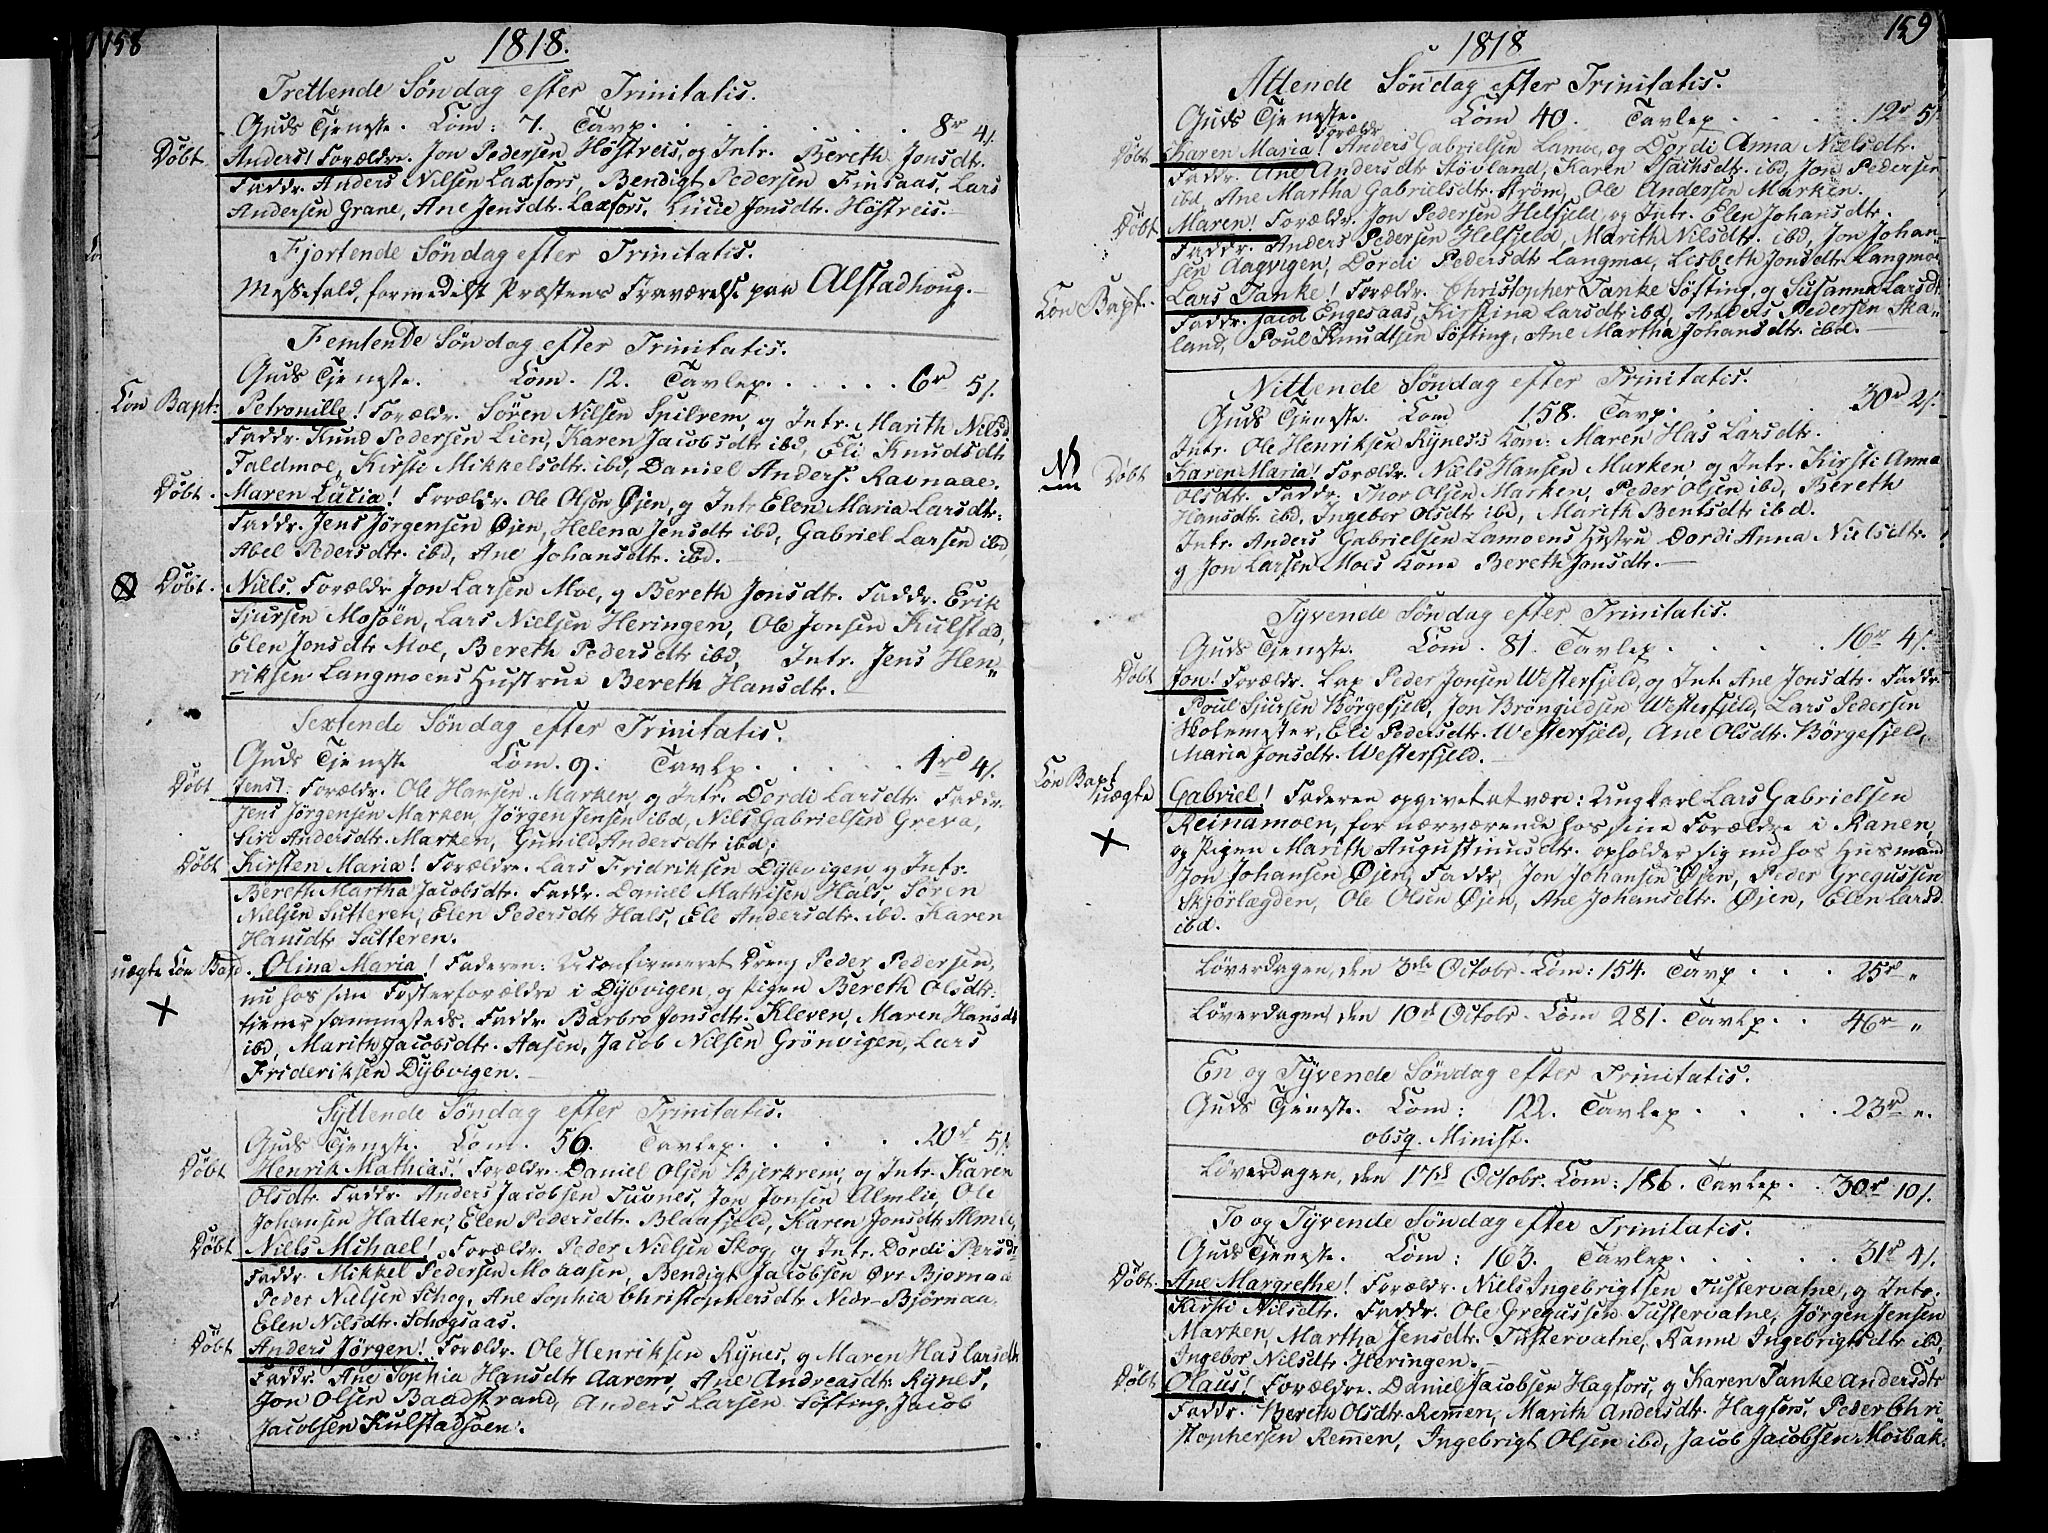 158
1818.
Trettende Søndag efter Trinitatis.
Guds Tjeneste. Com: 7. Tavp. 8r 4/.
Døbt Anders! Forældre. Jon Pedersen Høstreis, og Intr. Bereth Jonsdtr.
Faddr. Anders Nilsen Laxfors, Bendigt Pedersen Finsaas, Lars
Andersen Grane, Ane Jensdtr. Laxfors, Lucie Jonsdtr. Høstreis.
Fjortende Søndag efter Trinitatis.
Messefald, formedelst Præstens Fraværelse paa Alstadhoug.
Femtende Søndag efter Trinitatis.
Guds Tjeneste. Com. 12. Tavlep. 6r 5/.
Con Bapt: Petronille! Forældr. Søren Nilsen Spilrem, og Intr. Marith Nilsd
Faddr. Knud Pedersen Lien, Karen Jacobsdtr ibd, Eli Knudsdtr
Faldmoe, Kirsti Mikkelsdtr. ibd, Daniel Anders. Ravnaae.
Døbt. Maren Lucia! Forældr. Ole Olsen Øjen, og Intr Elen Maria Larsdtr:
Faddr. Jens Jørgensen Øjen, Helena Jensdtr ibd, Gabriel Larsen ibd,
Abel Pedersdtr. ibd, Ane Johansdtr. ibd.
Døbt. Niels. Forældr Jon Larsen Moe, og Bereth Jonsdtr. Faddr. Erik
Sjursen Mosøen, Lars Nielsen Heringen, Ole Jonsen Kulstad,
Elen Jonsdtr Moe, Bereth Pedersdtr ibd, Intr. Jens Hen„
riksen Langmoens Hustrue Bereth Hansdtr.
Sextende Søndag efter Trinitatis.
Guds Tjeneste Com. 9. Tavlp. 1rd 4/.
Døbt Jens! Forældr. Ole Hansen Marken, og Intr. Dordi Larsdtr. Faddr.
Jens Jørgensen Marken, Jørgen Jensen ibd, Nils Gabrielsen Greva,
Siri Andersdtr. Marken, Gunild Andersdtr ibd.
Døbt Kirsten Maria! Forældre. Lars Fridriksen Dybvigen, og Intr.
Bereth Martha Jacobsdtr. Faddr. Daniel Mathisen Hals, Søren
Nielsen Sutteren, Elen Pedersdtr Hals, Ele Andersdtr. ibd. Karen
Hansdtr Sutteren.
uægte Con Bapt. Olina Maria! Faderen: Uconfirmeret Dreng Peder Pedersen,
nu hos sine Fosterforældre i Dybvigen, og Pigen Bereth Olsdtr:
tjener sammesteds. Faddr. Barbro Jonsdtr. Kleven, Maren Hansdtr
ibd, Marith Jacobsdtr. Aasen, Jacob Nilsen Grønvigen, Lars
Frideriksen Dybvigen.
Syttende Søndag efter Trinitatis.
Guds Tjeneste. Com. 56. Tavlep. 20r 5/.
Døbt Henrik Mathias! Forældr. Daniel Olsen Skjerkrem, og Intr. Karen
Olsdtr. Faddr. Anders Jacobsen Tuvnes, Jon Jonsen Almlie, Ole
Johansen Hatten, Elen Pedersdtr. Blaafjeld, Karen Jonsdtr Almlie,
Døbt Niels Mihael! Forældr. Peder Nielsen Skog, og Intr. Dordi Persdr
Faddr. Mikkel Pedersen Moaasen, Bendigt Jacobsen Øvr Bjornaa
Peder Nielsen Schog, Ane Sophia Christophersdtr Nedr-Bjørnaa
Elen Nilsdtr. Schogsaas.
Døbt Anders Jørgen! Forældr. Ole Henriksen Rynes, og Maren Has Larsdtr
Faddr. Ane Sophia Hansdtr Aarem, Ane Andreasdtr. Rynes,
Jon Olsen Baadstrand, Anders Larsen Søfting, Jacob
Jacobsen Kulstadsøen.
159
1818
Attende Søndag efter Trinitatis.
Guds Tjeneste. Com 40. Tavlep. 12r 5/.
Døbt Karen Maria! Forældr Anders Gabrielsen Lamoe, og Dordi Anna Nielsdtr.
Faddr. Ane Andersdtr Støvland, Karen Isachsdtr. ibd, Jon Pedersen
ibd, Ane Martha Gabrielsdtr. Strøm, Ole Andersen Marken.
Døbt Maren! Forældr. Jon Pedersen Helfjeld, og Intr. Elen Johansdtr.
Faddr. Anders Pedersen Helfjeld, Marith Nilsdtr. ibd, Jon Johan„
sen Aagvigen, Dordi Pedersdtr Langmoe, Lisbeth Jonsdtr. Langmoe
Con Bapt. Lars Tanke! Forældr. Christopher Tanke Søfting, og Susanna Larsdt
Faddr. Jacob Engesaas, Kirstina Larsdtr ibd, Anders Pedersen Ska„
land, Poul Knudtsen Søfting, Ane Martha Johansdtr. ibd.
Nittende Søndag efter Trinitatis.
Guds Tjeneste. Com 158. Tavp. 30d 2/.
Intr. Ole Henriksen Rynes's Kone: Maren Has Larsdtr.
Døbt Karen Maria! Forældr. Niels Hansen Marken og Intr. Kirsti Anna
Olsdtr. Faddr. Thor Olsen Marken, Peder Olsen ibd, Bereth
Hansdtr ibd, Ingebor Olsdtr ibd, Marith Bentsdtr ibd.
Intr. Anders Gabrielsen Lamoens Hustru Dordi Anna Nielsdtr.
og Jon Larsen Moes Kone Bereth Jonsdtr.
Tyvende Søndag efter Trinitatis.
Guds Tjeneste. Com. 81. Tavlep. 16r 4/.
Døbt Jon! Forældr. Lap Peder Jonsen Westerfjeld, og Int. Ane Jonsdtr. Faddr.
Poul Sjursen Børgefjeld, Jon Brøngildsen Westerfjeld, Lars Pedersen
Skolemester, Eli Pedersdtr. Westerfjeld, Ane Olsdtr. Børgefjeld,
Maria Jonsdtr. Westerfjeld.
Con Bapt uægte Gabriel! Faderen opgivet at være: Ungkarl Lars Gabrielsen
Reinamoen, for nærværende hos sine Forældre i Ranen,
og Pigen Marith Augustinusdtr. opholder sig nu hos Husmand
Jon Johansen Øjen, Faddr. Jon Johansen Øjen, Peder Gregussen
Skjørlægden, Ole Olsen Øjen, Ane Johansdtr. Øjen, Elen Larsd.
ibd.
Løverdagen, den 3de Octobr. Com: 154. Tavp. 25r „
Løverdagen, den 10d Octobr. Com 281. Tavlp. 46r „
En og Tyvende Søndag efter Trinitatis.
Guds Tjeneste. Com: 122. Tavlep. 23r „.
obsq. Minist.
Løverdagen, den 17d Octobr. Com: 186. Tavlep. 30r 10/.
To og Tyvende Søndag efter Trinitatis.
Guds Tjeneste. Com: 163. Tavlep. 31r 4/.
Døbt. Ane Margrethe! Forældr. Niels Ingebrigtsen Tustervatne, og Intr:
Kirsti Nilsdtr. Faddr. Ole Gregussen Tustervatne, Jørgen Jensen
Marken, Martha Jensdtr. Tustervatne, Ranne Ingebrigtsdtr ibd,
Ingebor Nilsdtr. Heringen.
Døbt Olaus! Forældre. Daniel Jacobsen Hagfors, og Karen Tanke Andersdtr
Faddr. Bereth Olsdtr. Remen, Marith Andersdtr. Hagfors, Peder Chri
stophersen Remen, Ingebrigt Olsen ibd, Jacob Jacobsen Mosbak.